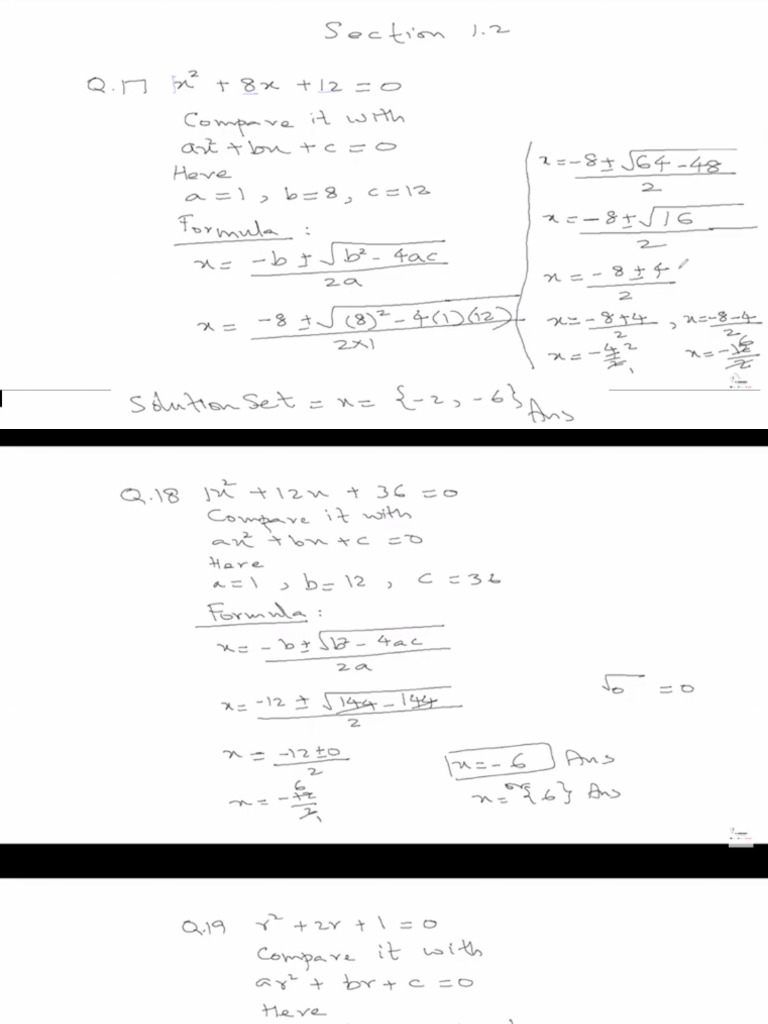 Section 1.2
Q.17 x² + 8x + 12 = 0
Compare it with
ax² + bx + c = 0
Here
a = 1 , b = 8 , c = 12
Formula :
x = -b ± √b² - 4ac / 2a
x = -8 ± √(8)² - 4(1)(12) / 2×1
x = -8 ± √64 - 48 / 2
x = -8 ± √16 / 2
x = -8 ± 4 / 2
x = -8+4 / 2 , x = -8-4 / 2
x = -4 2 / 2 1 x = -12 6 / 2
Solution Set = x = {-2, -6} Ans
Q.18 1x² + 12x + 36 = 0
Compare it with
ax² + bx + c = 0
Here
a = 1 , b = 12 , c = 36
Formula :
x = -b ± √b² - 4ac / 2a
x = -12 ± √144 - 144 / 2
√0 = 0
x = -12 ± 0 / 2
x = -12 6 / 2 1
x = -6 Ans
or
x = {6} Ans
Q.19 r² + 2r + 1 = 0
Compare it with
ar² + br + c = 0
Here